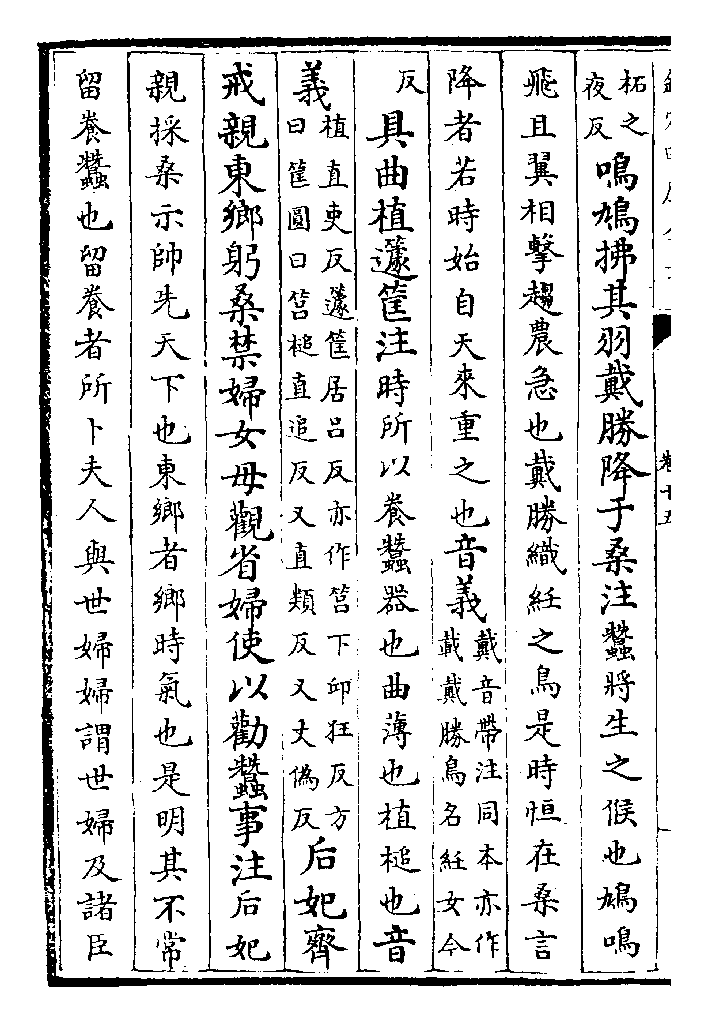 卷十五
柘之夜反鳴鳩拂其羽戴勝降于桑注蠶將生之候也鳩鳴
飛且翼相擊趨農急也戴勝織紝之鳥是時恒在桑言
降者若時始自天來重之也音義戴音帶注同本亦作載戴勝鳥名紝女今
反具曲植蘧筐注時所以養蠶器也曲薄也植槌也音
義植直吏反蘧筐居呂反亦作筥下邱狂反方曰筐圓曰筥槌直追反又直類反又丈偽反后妃齊
戒親東鄉躬桑禁婦女毋觀省婦使以勸蠶事注后妃
親採桑示帥先天下也東鄉者鄉時氣也是明其不常
留養蠶也留養者所卜夫人與世婦婦謂世婦及諸臣